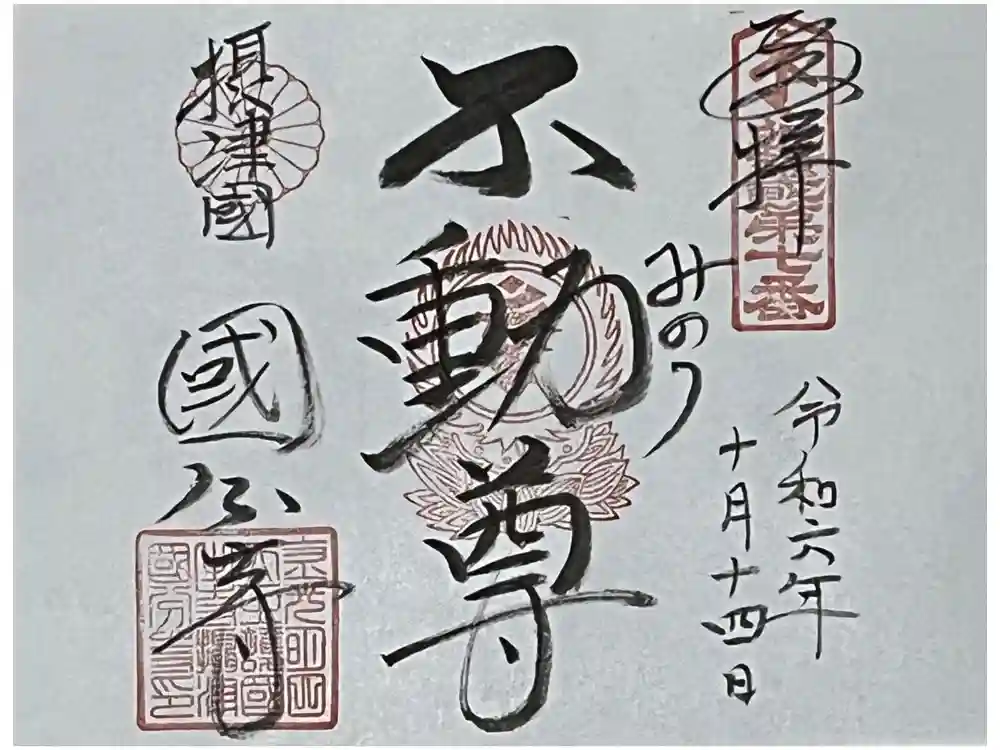 奉拝
第七番
令和六年
十月十四日
みのり
不動尊
摂津國
國分寺